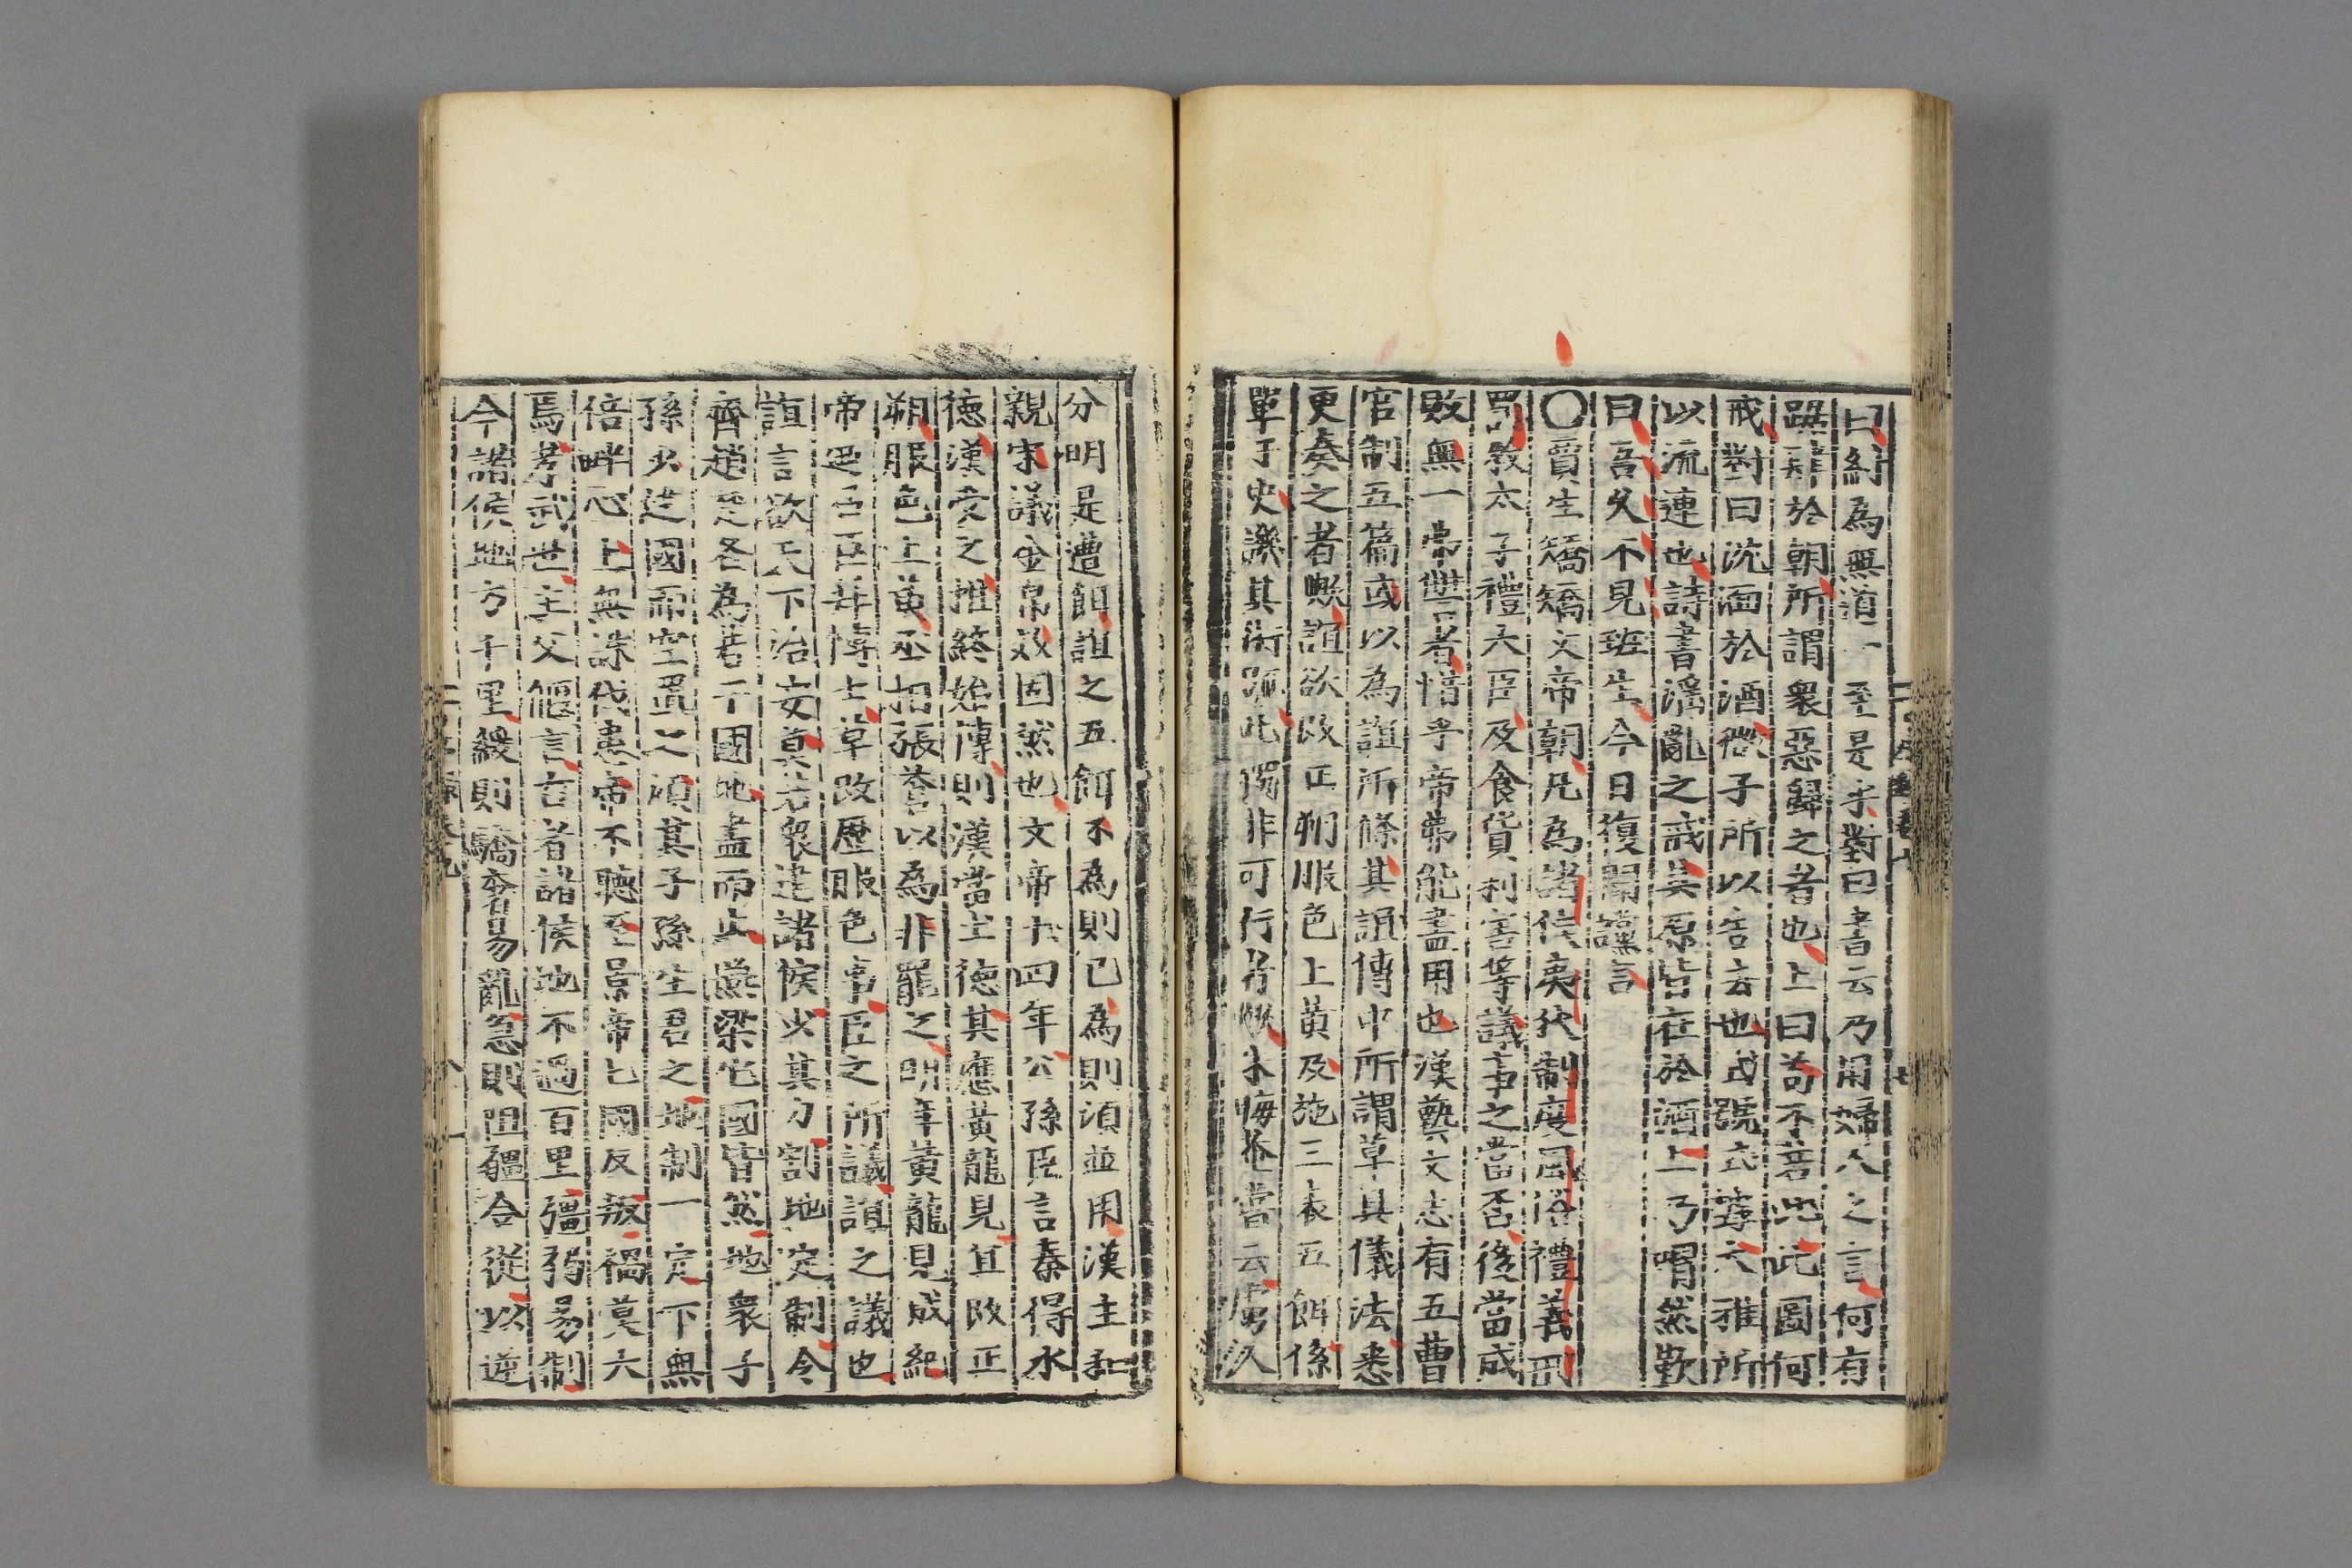 曰紂為無道一至是乎對曰書云乃用婦人之言何有
踞肆於朝所謂衆惡歸之者也上曰苟不若此此圖何
戒對曰沈湎於酒微子所以告去也式號式謼大雅所
以流連也詩書淫亂之戒其原皆在於酒上乃喟然歎
曰吾久不見班生今日復聞讜言
〇賈生矯矯文帝朝凡為諸侯夷狄制度風俗禮義刑
罰教太子禮大臣及食貨利害等議事之當否後當成
敗無一弗讐者惜乎帝弗能盡用也漢藝文志有五曹
官制五篇或以為誼所條其誼傳中所謂草具儀法悉
更奏之者歟誼欲改正朔服色上黃及施三表五餌係
單于史譏其術疏此獨非可行者歟朱晦菴嘗云虜人
分明是遭餌誼之五餌不為則已為則須並用漢主和
親宋議金帛奴固然也文帝十四年公孫臣言秦得水
德漢受之推終始傳則漢當土德其應黃龍見宜改正
朔服色上黃丞相張蒼以為非罷之明年黃龍見成紀
帝迺召臣幷博士草改歷服色事臣之所議誼之議也
誼言欲天下治安莫若衆建諸侯少其力割地定制令
齊趙楚各為若干國地盡而止燕梁它國皆然地衆子
孫少建國而空置之須其子孫生君之地制一定下無
倍畔心上無誅伐患帝不聽至景帝七國反叛禍莫大
焉孝武世主父偃言古者諸侯地不過百里彊弱易制
今諸侯地方千里緩則驕奢易亂急則阻彊合從以逆